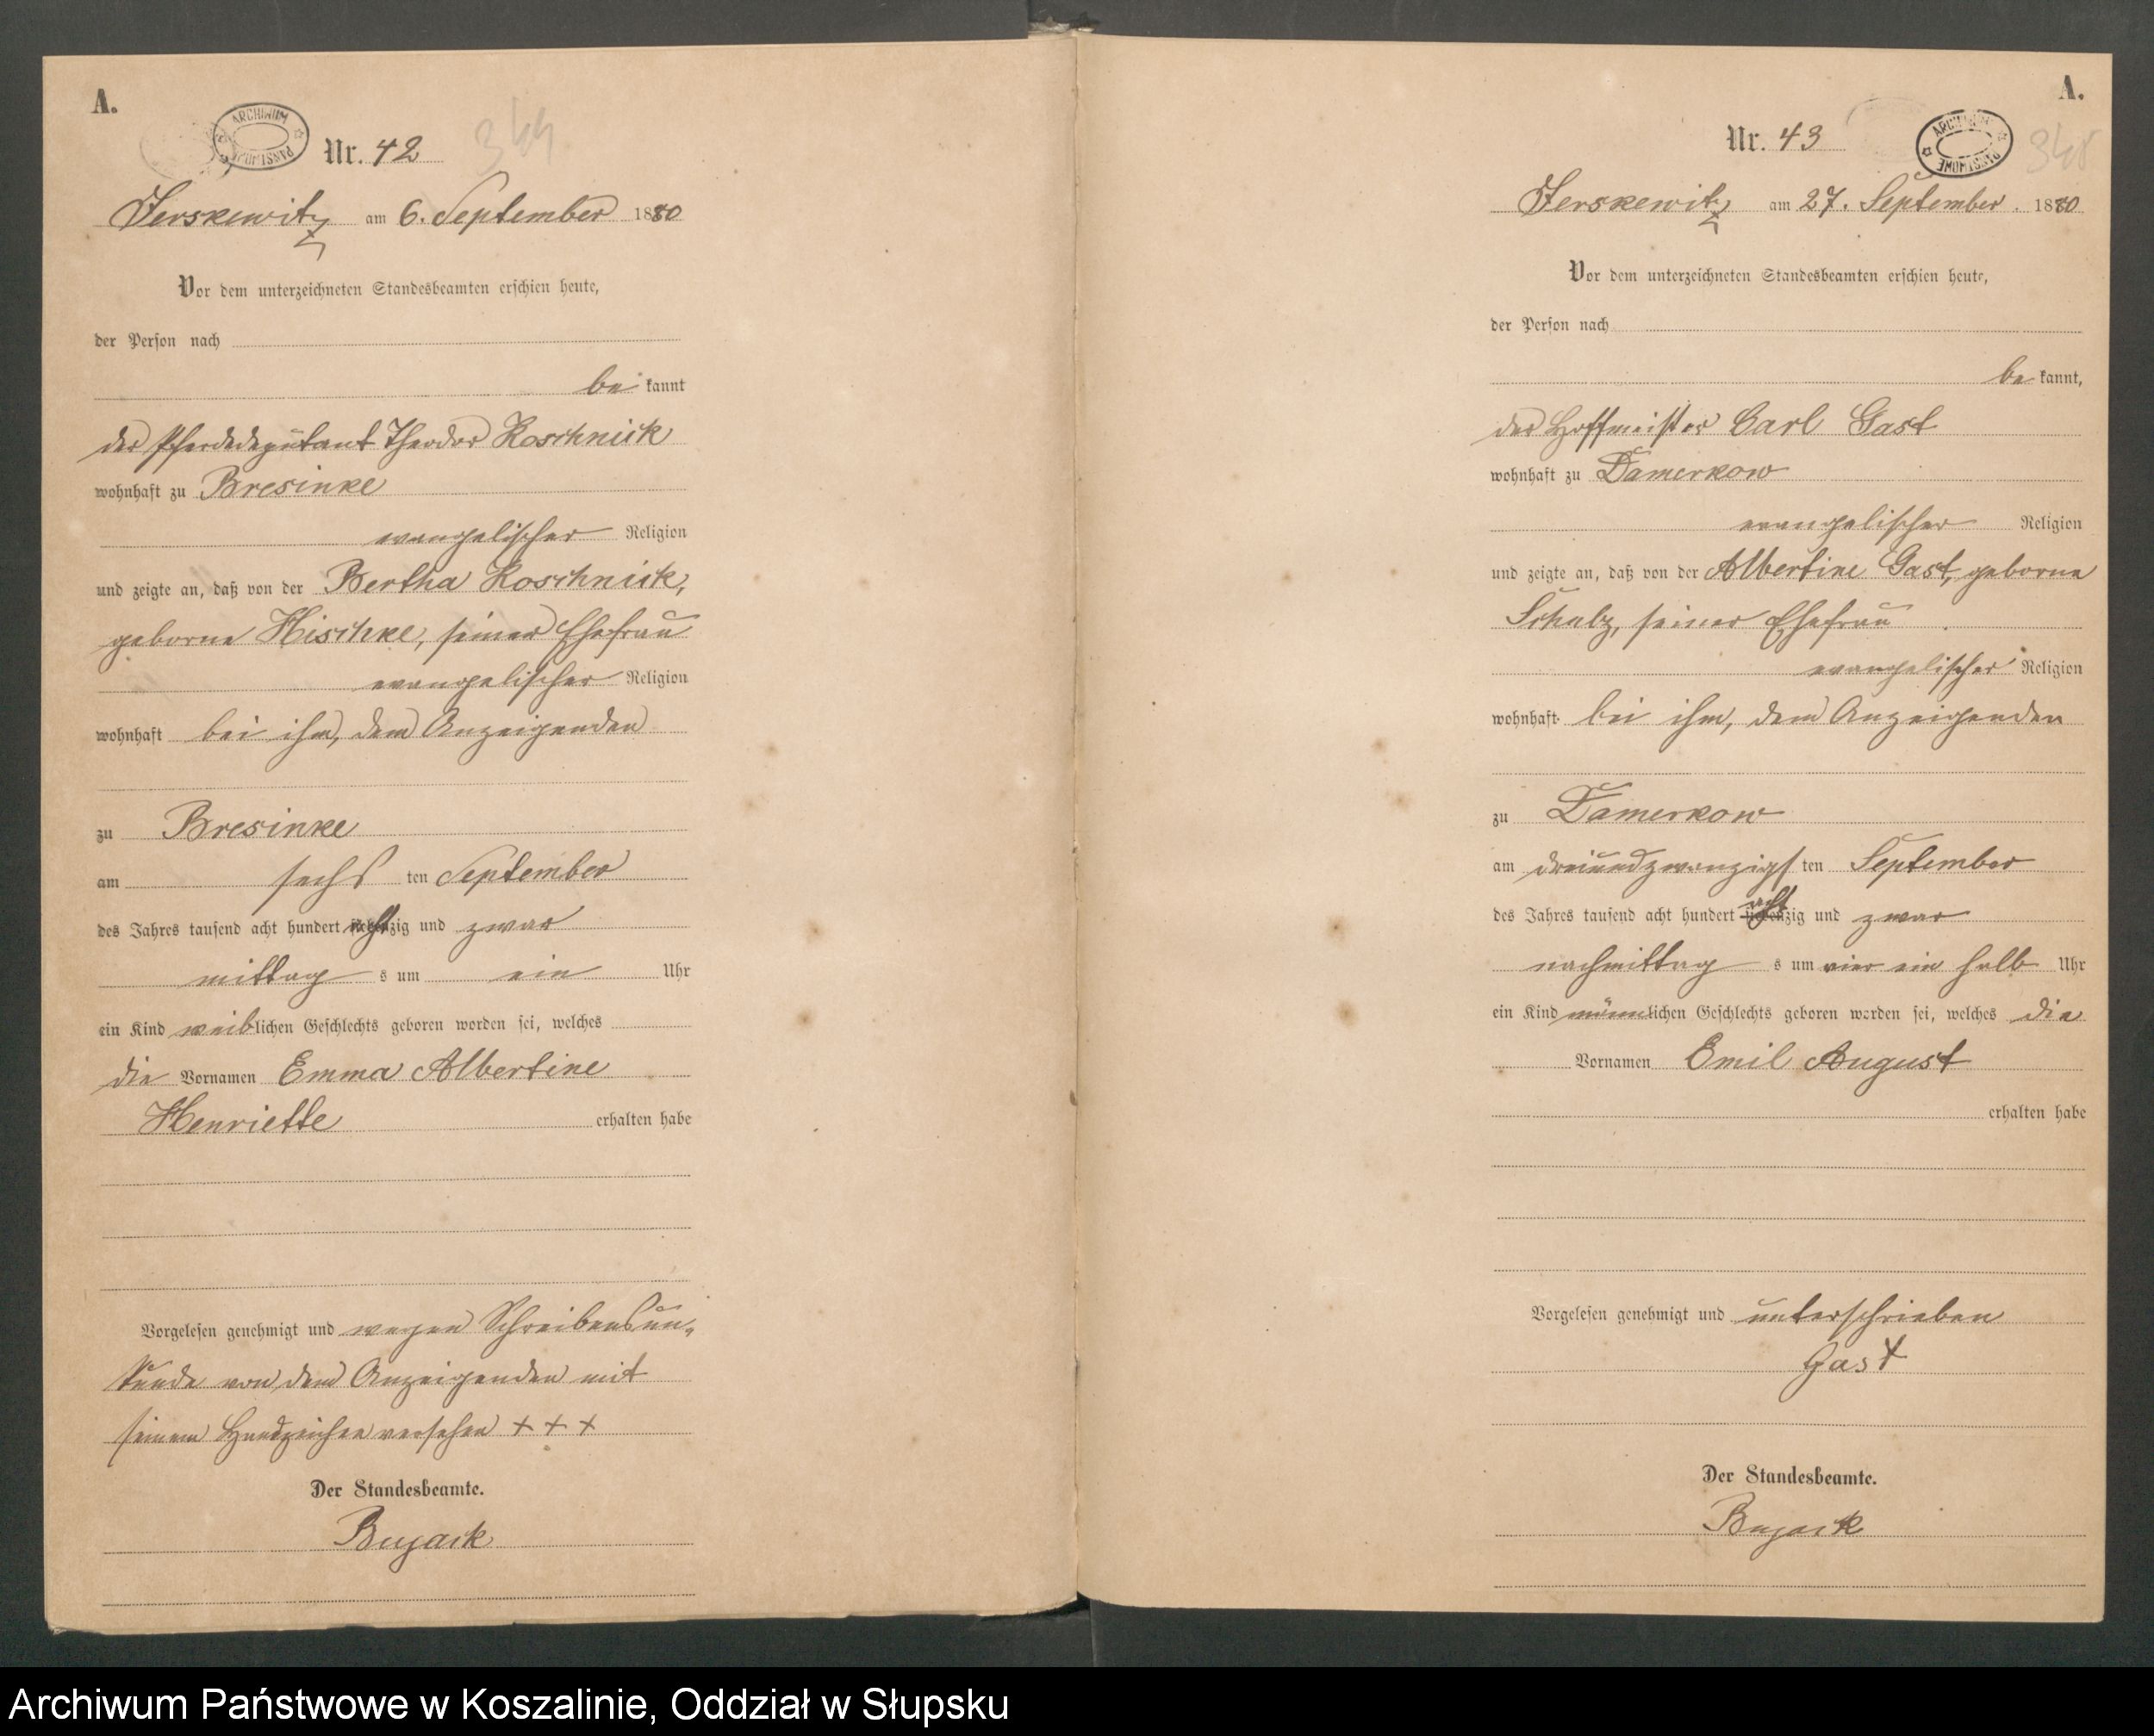 A.
ARCHIWUM PAŃSTWOWE
Nr. 42
344
Jerskewitz am 6. September 1880
Vor dem unterzeichneten Standesbeamten erschien heute,
der Person nach
be kannt
der Pferdedeputant Theodor Koschnick
wohnhaft zu Bresinke
evangelischer Religion
und zeigte an, daß von der Bertha Koschnick,
geborne Hischke, seiner Ehefrau
evangelischer Religion
wohnhaft bei ihm, dem Anzeigenden
zu Bresinke
am sechs ten September
des Jahres tausend acht hundert achtzig und zwar
mittag s um ein Uhr
ein Kind weiblichen Geschlechts geboren worden sei, welches
die Vornamen Emma Albertine
Henriette erhalten habe
Vorgelesen genehmigt und wegen Schreibensun-
kunde von dem Anzeigenden mit
seinem Handzeichen versehen + + +
Der Standesbeamte.
Bujack
A.
ARCHIWUM PAŃSTWOWE
Nr. 43
345
Jerskewitz am 27. September. 1880
Vor dem unterzeichneten Standesbeamten erschien heute,
der Person nach
be kannt,
der Hoffmeister Carl Gast
wohnhaft zu Damerkow
evangelischer Religion
und zeigte an, daß von der Albertine Gast, geborne
Schulz, seiner Ehefrau
evangelischer Religion
wohnhaft bei ihm, dem Anzeigenden
zu Damerkow
am dreiundzwanzigs ten September
des Jahres tausend acht hundert achtzig und zwar
nachmittag s um vier ein halb Uhr
ein Kind männlichen Geschlechts geboren worden sei, welches die
Vornamen Emil August
erhalten habe
Vorgelesen genehmigt und unterschrieben
Gast
Der Standesbeamte.
Bujack
Archiwum Państwowe w Koszalinie, Oddział w Słupsku